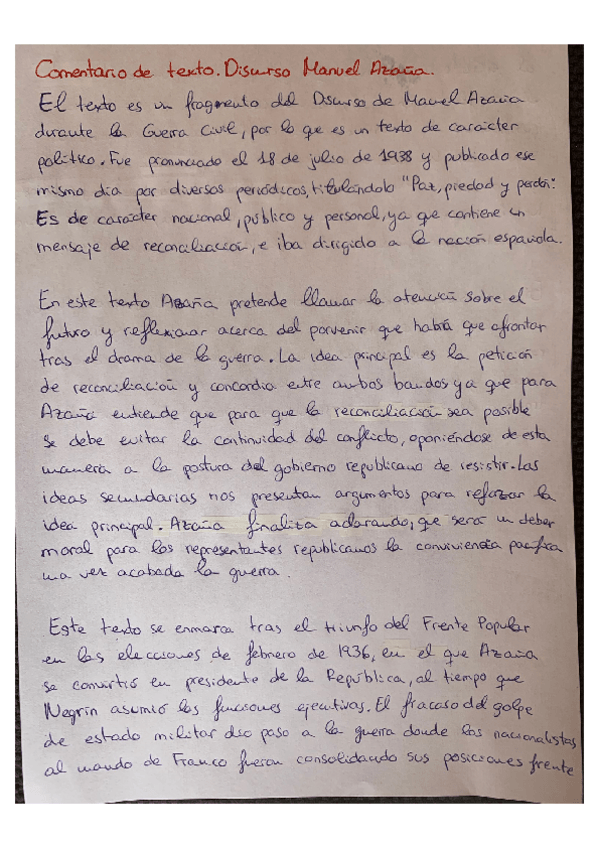 Comentario de texto. Discurso Manuel Azaña.
El texto es un fragmento del Discurso de Manuel Azaña
durante la Guerra Civil, por lo que es un texto de carácter
político. Fue pronunciado el 18 de julio de 1938 y publicado ese
mismo día por diversos periódicos, titulándolo "Paz, piedad y perdón".
Es de carácter nacional, público y personal, ya que contiene un
mensaje de reconciliación, e iba dirigido a la nación española.
En este texto Azaña pretende llamar la atención sobre el
futuro y reflexionar acerca del porvenir que había que afrontar
tras el drama de la guerra. La idea principal es la petición
de reconciliación y concordia entre ambos bandos ya que para
Azaña entiende que para que la reconciliación sea posible
se debe evitar la continuidad del conflicto, oponiéndose de esta
manera a la postura del gobierno republicano de resistir. Las
ideas secundarias nos presentan argumentos para reforzar la
idea principal. Azaña finaliza aclarando, que será un deber
moral para los representantes republicanos la conviviencia pacífica
una vez acabada la guerra.
Este texto se enmarca tras el triunfo del Frente Popular
en las elecciones de febrero de 1936, en el que Azaña
se convirtió en presidente de la República, al tiempo que
Negrín asumió las funciones ejecutivas. El fracaso del golpe
de estado militar dio paso a la guerra donde los nacionalistas
al mando de Franco fueron consolidando sus posiciones frente